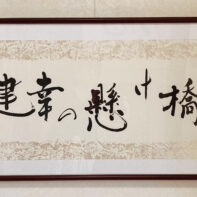 建幸の懸け橋